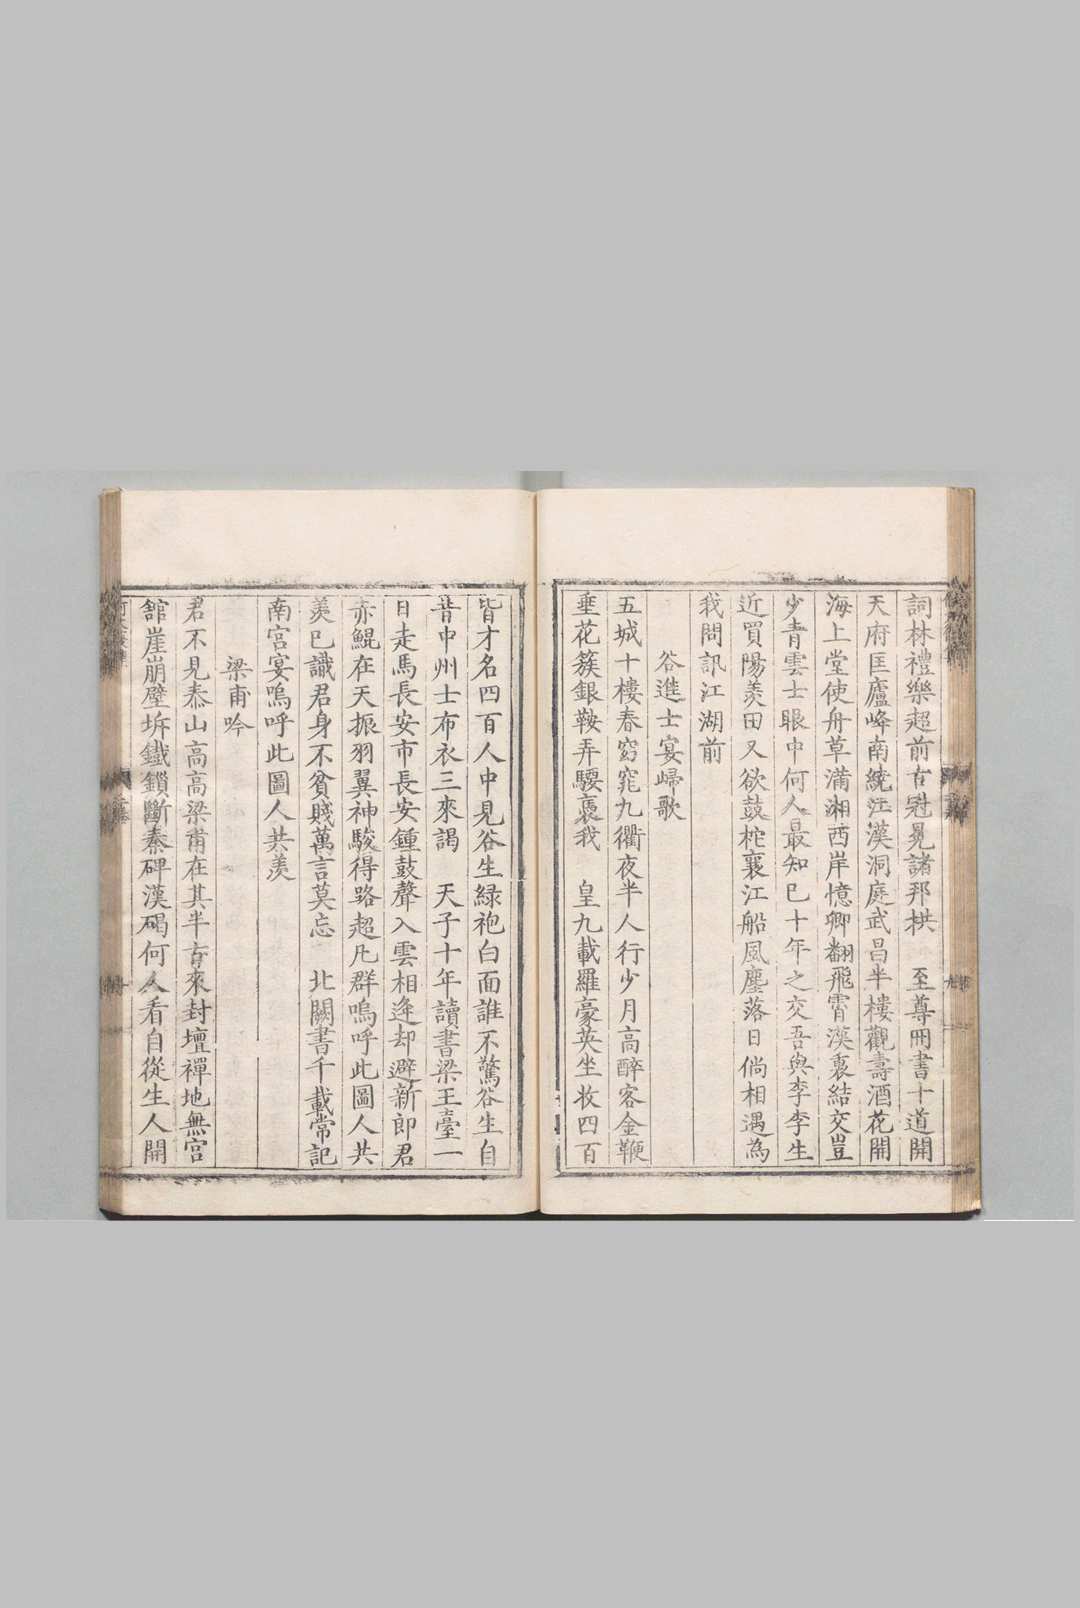 詞林禮樂超前古冠冕諸邦拱　至尊冊書十道開
天府匡廬峰南繞江漢洞庭武昌半樓觀壽酒花開
海上堂使舟草滿湘西岸憶卿翻飛霄漢裏結交豈
少青雲士眼中何人最知已十年之交吾與李李生
近買陽羨田又欲鼓柁襄江船風塵落日倘相遇為
我問訊江湖前
谷進士宴歸歌
五城十樓春窈窕九衢夜半人行少月高醉客金鞭
垂花簇銀鞍弄騕褭我　皇九載羅豪英坐收四百
皆才名四百人中見谷生緑袍白面誰不驚谷生自
昔中州士布衣三來謁　天子十年讀書梁王臺一
日走馬長安市長安鍾鼓聲入雲相逢却避新郎君
赤鯤在天振羽翼神駿得路超凡群嗚呼此圖人共
羨巳識君身不貧賤萬言莫忘　北闕書千載常記
南宮宴嗚呼此圖人共羨
梁甫吟
君不見泰山高高梁甫在其半古來封壇禪地無宮
館崖崩壁坼鐵鎖斷秦碑漢碣何人看自從生人開